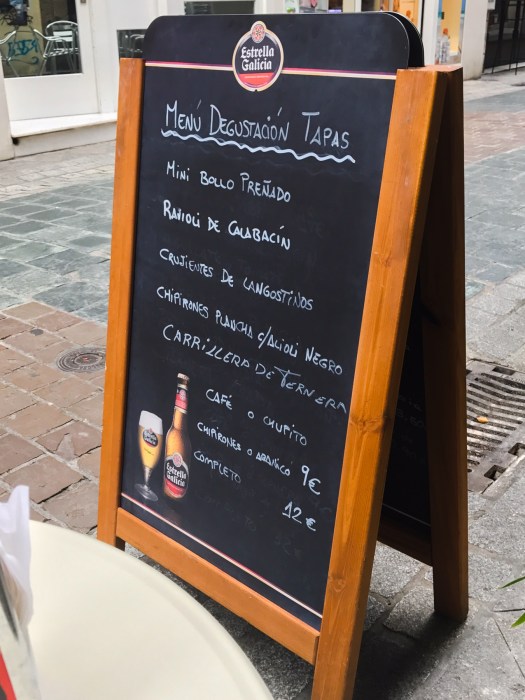 Estrella
Galicia
MENÚ DEGUSTACIÓN TAPAS
MINI BOLLO PREÑADO
RAVIOLI DE CALABACÍN
CRUJIENTES DE LANGOSTINOS
CHIPIRONES PLANCHA C/ALIOLI NEGRO
CARRILLERA DE TERNERA
CAFÉ O CHUPITO
CHIPIRONES O 9€
COMPLETO 12€
Estrella
Galicia